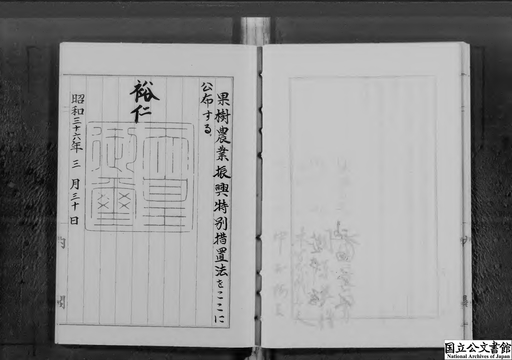 果樹農業振興特別措置法をここに
公布する
裕仁
天皇
御璽
昭和三十六年三月三十日
国立公文書館
National Archives of Japan